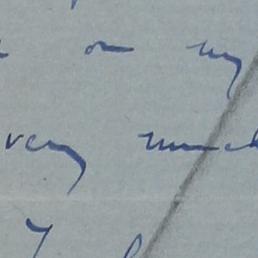 on my
very much